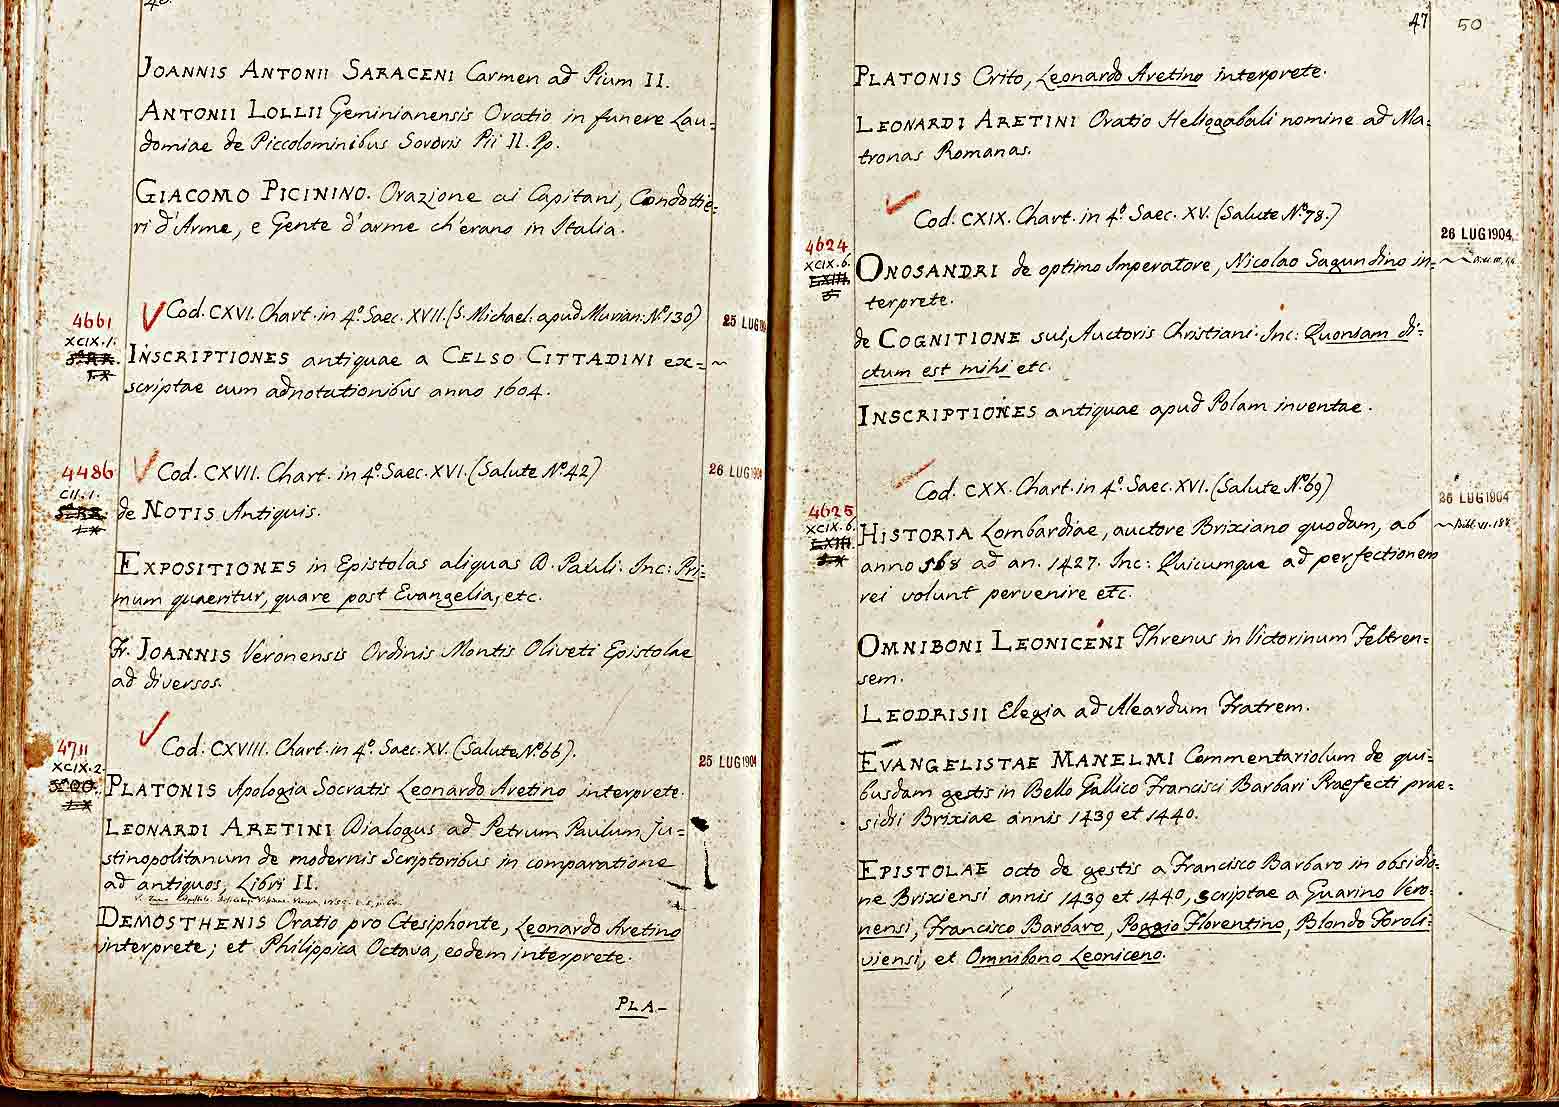 JOANNIS ANTONII SARACENI Carmen ad Pium II.
ANTONII LOLLII Geminianensis Oratio in funere Lau=
domiae de Piccolominibus Sororis Pii II. Pp.
GIACOMO PICININO. Orazione ai Capitani, Condottie=
ri d'Arme, e Gente d'arme ch'erano in Italia.
4661
XCIX.1.
Cod. CXVI. Chart. in 4º. Saec. XVII. (S. Michael. apud Murian. Nº.130)
25 LUG
INSCRIPTIONES antiquae a CELSO CITTADINI ex=
scriptae cum adnotationibus anno 1604.
4486
CII.1.
Cod. CXVII. Chart. in 4º. Saec. XVI. (Salute Nº.42)
26 LUG 1904
de NOTIS Antiquis.
EXPOSITIONES in Epistolas aliquas D. Pauli. Inc: Pri=
mum quaeritur, quare post Evangelia, etc.
Fr. JOANNIS Veronensis Ordinis Montis Oliveti Epistolae
ad diversos.
4711
XCIX.2.
Cod. CXVIII. Chart. in 4º. Saec. XV. (Salute Nº.66).
25 LUG 1904
PLATONIS Apologia Socratis Leonardo Aretino interprete.
LEONARDI ARETINI Dialogus ad Petrum Paulum Ju=
stinopolitanum de modernis Scriptoribus in comparatione
ad antiquos, Libri II.
DEMOSTHENIS Oratio pro Ctesiphonte, Leonardo Aretino
interprete; et Philippica Octava, eodem interprete.
PLA-
47 50
PLATONIS Crito, Leonardo Aretino interprete.
LEONARDI ARETINI Oratio Heliogabali nomine ad Ma=
tronas Romanas.
Cod. CXIX. Chart. in 4º. Saec. XV. (Salute Nº.78.)
26 LUG 1904
4624
XCIX.6.
LXIII.
5.
ONOSANDRI de optimo Imperatore, Nicolao Sagundino in=
terprete.
de COGNITIONE sui, Auctoris Christiani. Inc: Quoniam di=
ctum est mihi etc.
INSCRIPTIONES antiquae apud Polam inventae.
Cod. CXX. Chart. in 4º. Saec. XVI. (Salute Nº.69)
26 LUG 1904
4625
XCIX.6.
LXIII.
HISTORIA Lombardiae, auctore Brixiano quodam, ab
anno 568 ad an. 1427. Inc: Quicumque ad perfectionem
rei volunt pervenire etc.
OMNIBONI LEONICENI Threnus in Victorinum Feltren=
sem.
LEODRISII Elegia ad Aleardum Fratrem.
EVANGELISTAE MANELMI Commentariolum de qui=
busdam gestis in Bello Gallico Francisci Barbari Praefecti prae=
sidii Brixiae annis 1439 et 1440.
EPISTOLAE octo de gestis a Francisco Barbaro in obsidio=
ne Brixiensi annis 1439 et 1440, scriptae a Guarino Vero=
nensi, Francisco Barbaro, Poggio Florentino, Blondo Foroli=
viensi, et Omnibono Leoniceno.